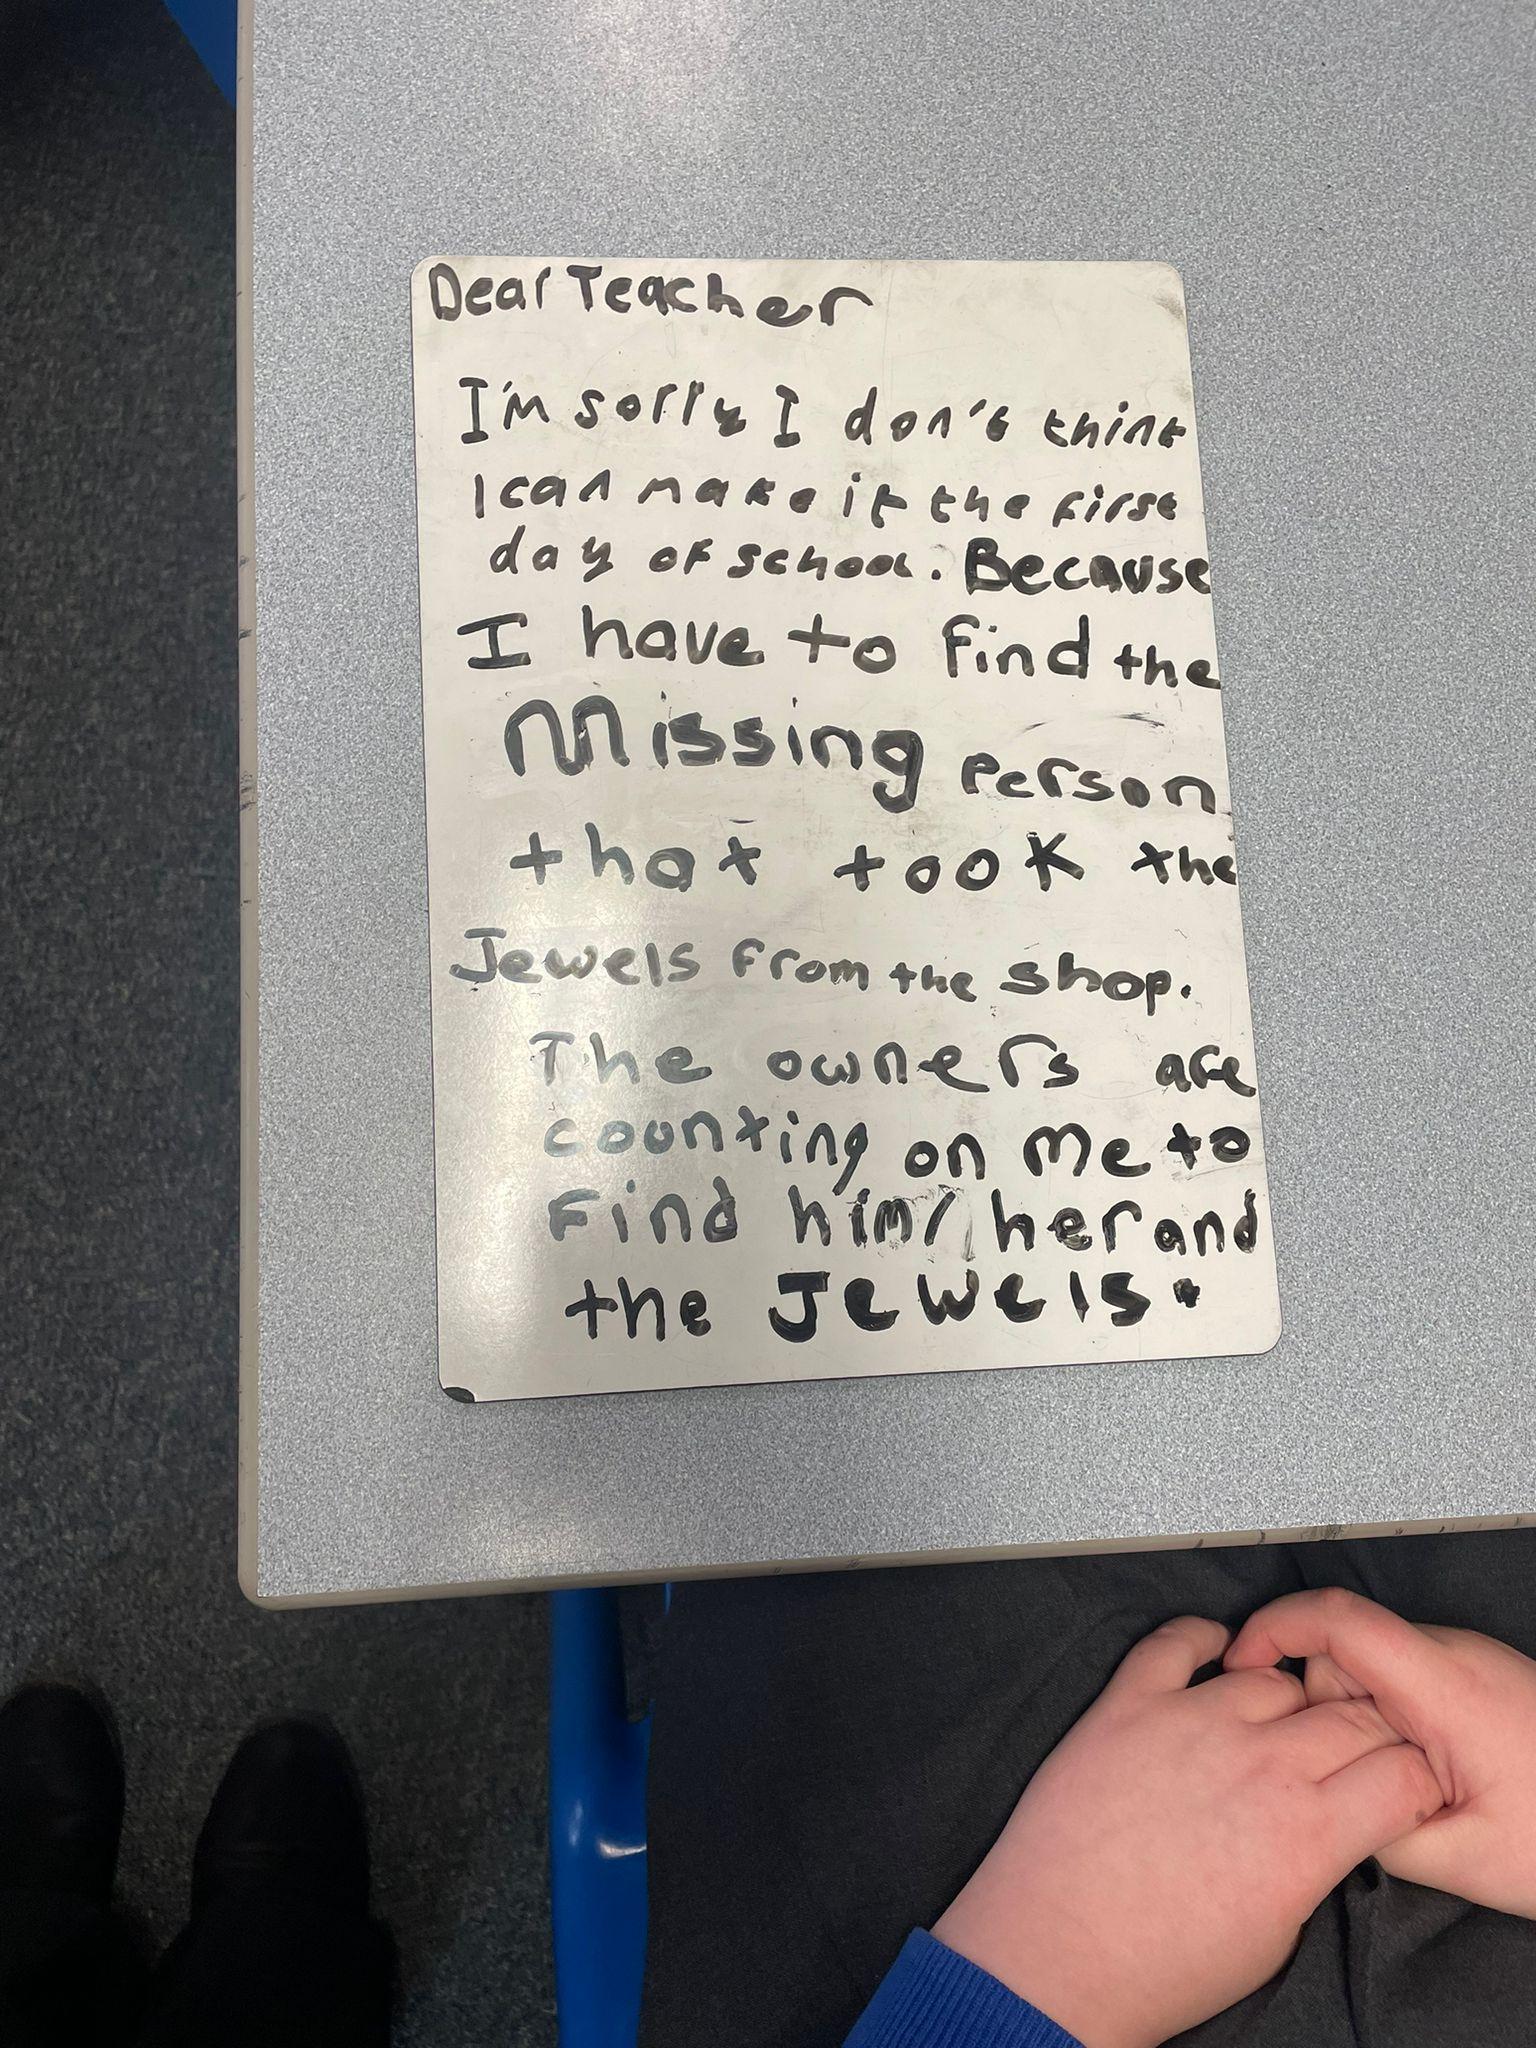 Dear Teacher
I'm sorry I don't think
I can make it the first
day of school. Because
I have to find the
Missing person
that took the
Jewels from the shop.
The owners are
counting on me to
Find him/her and
the Jewels.